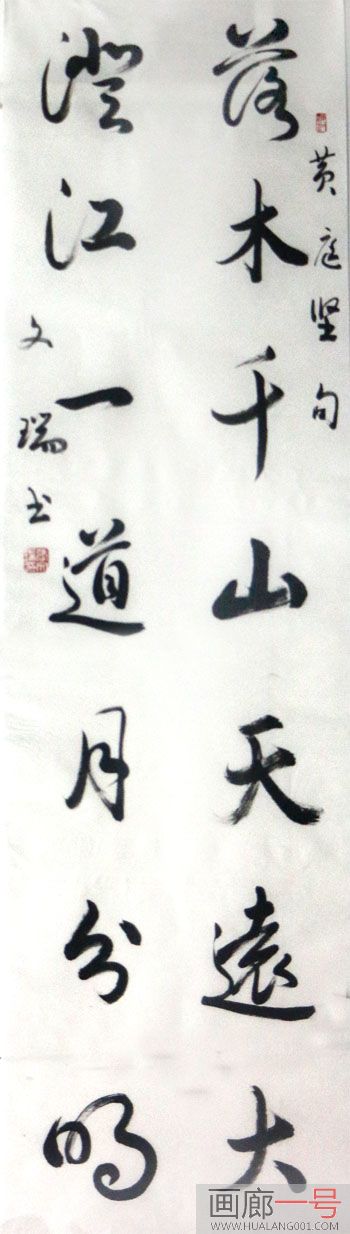 黄庭坚句
落木千山天遠大
澄江一道月分明
文瑞书
画廊一号
WWW.HUALANG001.COM